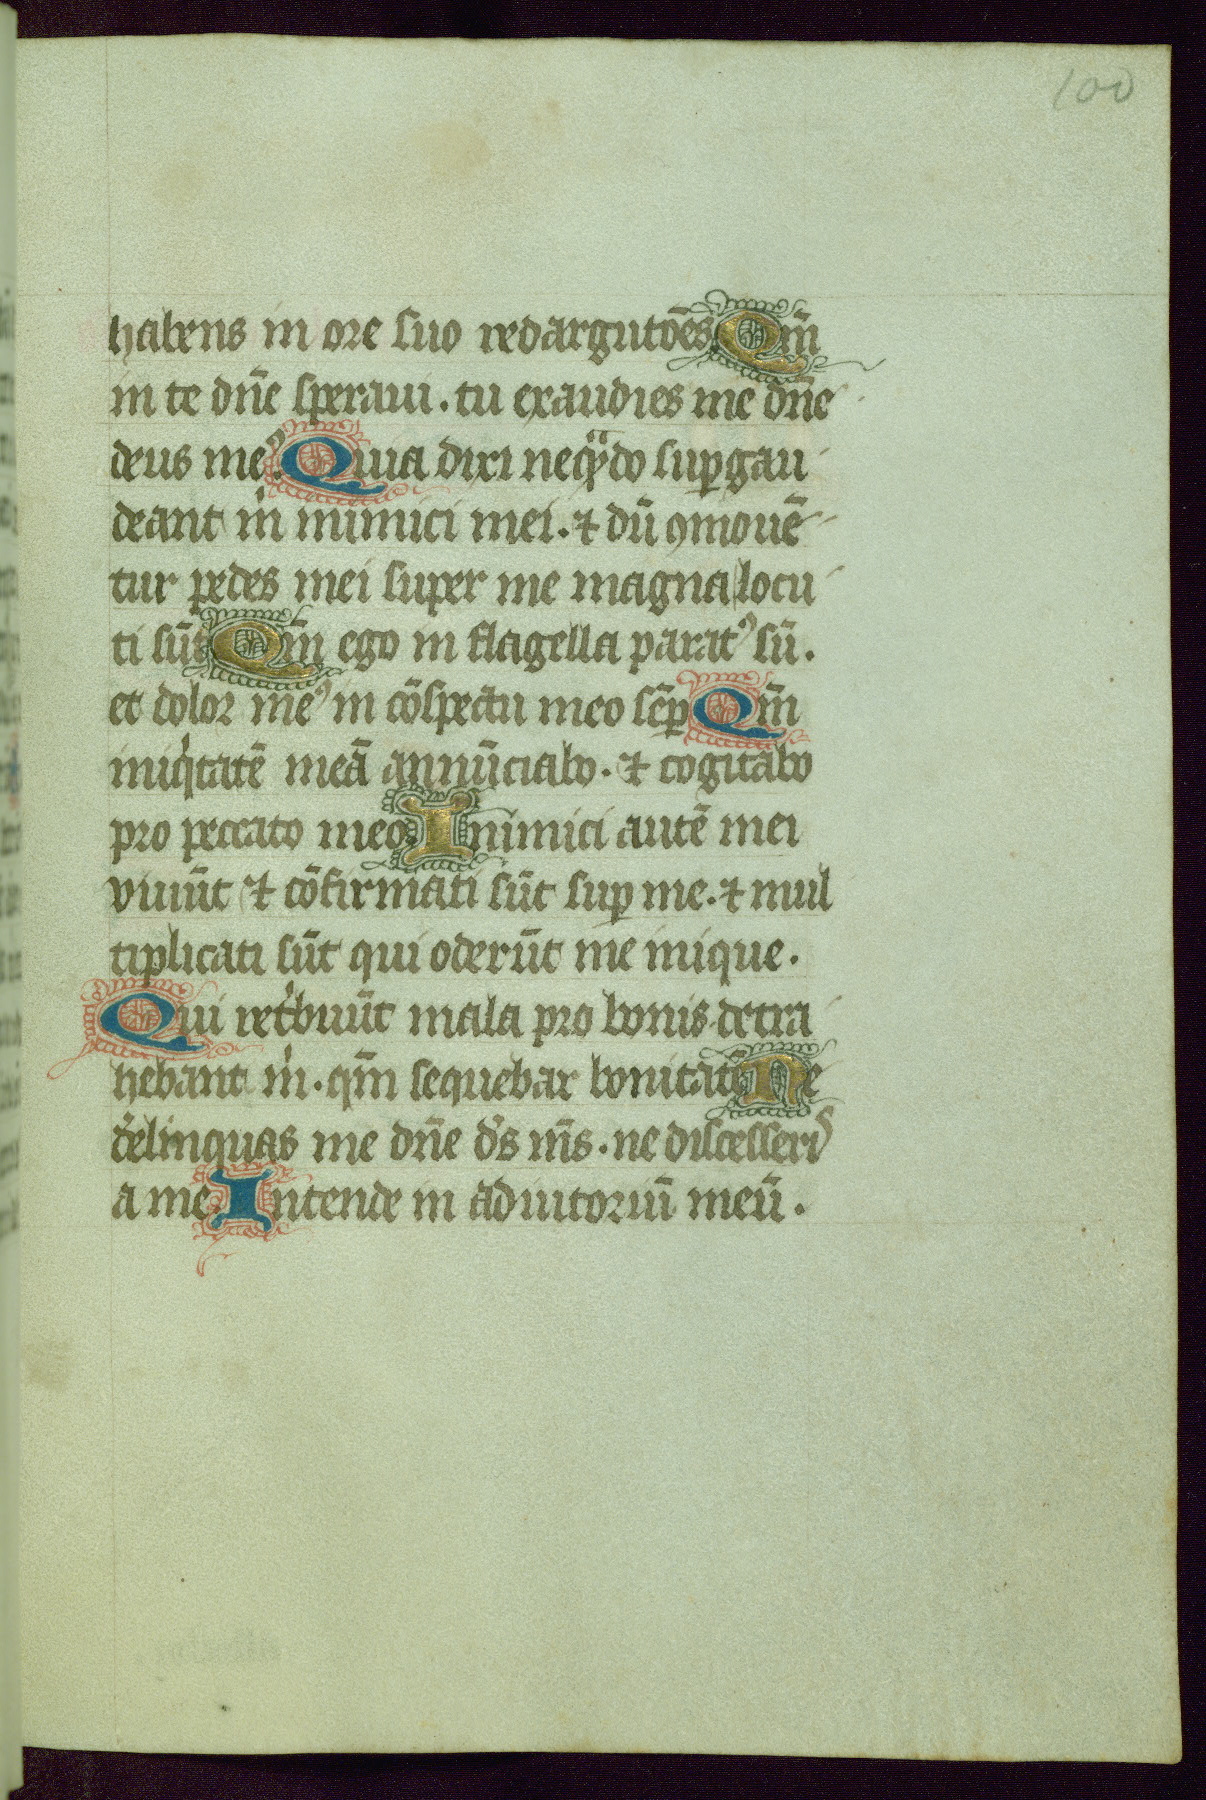 100
habens in ore suo redargutōēs Qm̄
in te dn̄e speraui. tu exaudies me dn̄e
deus meꝰ. Quia dixi neqͣdo suꝑgau
deant m̍ inimici mei. ⁊ dū ꝯmouē
tur pedes mei super me magna locu
ti sūt Qm̄ ego in flagella paratꝰ sū.
et dolor meꝰ in cōspectu meo sēꝑ Qm̄
iniq̍tatē meā annūciabo. ⁊ cogitabo
pro peccato meo. Inimici autē mei
viuūt ⁊ cōfirmati sūt suꝑ me. ⁊ mul
tiplicati sūt qui oderūt me inique.
Qui ret̍buūt mala pro bonis detra
hebant m̍. qm̄ sequebar bonitatē Ne
derelinquas me dn̄e ds̄ ms̄. ne discesseris
a me. Intende in adiutoriū meū.